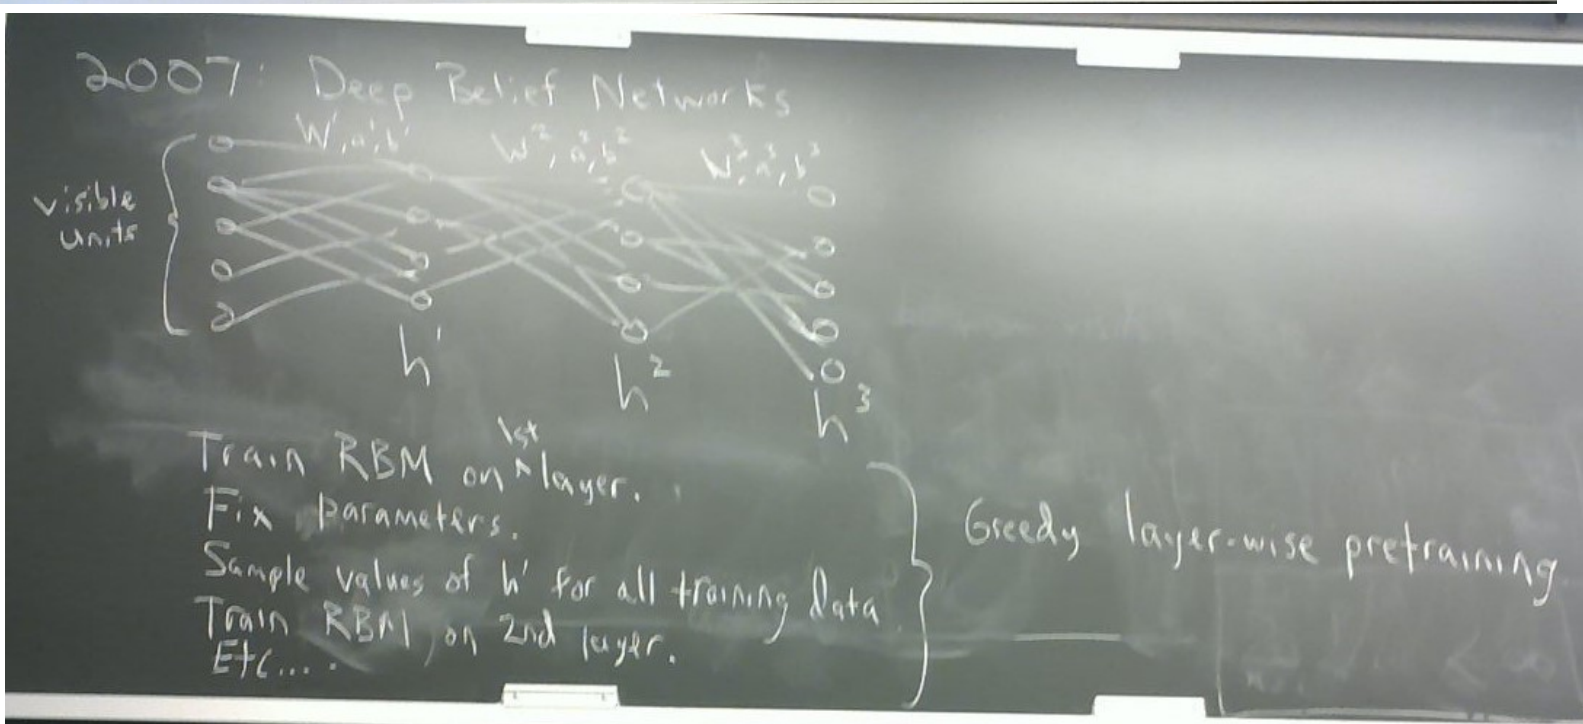 2007: Deep Belief Networks
W¹, a¹, b¹
W², a², b²
W³, a³, b³
visible
units
h¹
h²
h³
Train RBM on 1st layer.
Fix parameters.
Sample values of h¹ for all training data.
Train RBM on 2nd layer.
Etc....
Greedy layer-wise pretraining